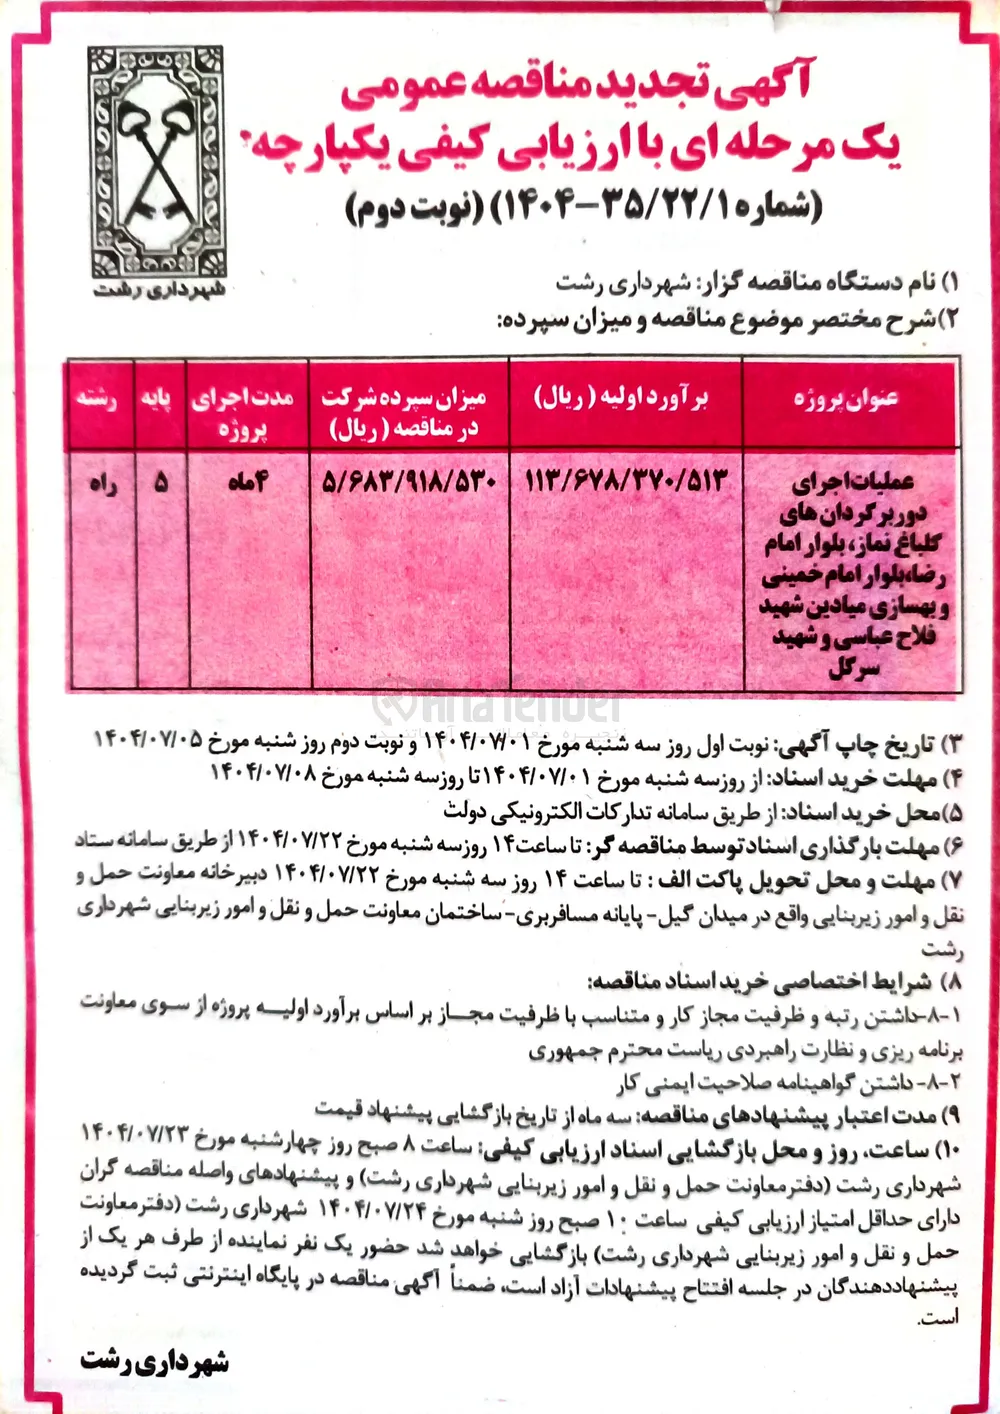 آگهی تجدید مناقصه عمومی
یک مرحله ای با ارزیابی کیفی یکپارچه
(شماره ۱۴۰۴-۳۵/۲۲/۱) (نوبت دوم)
شهرداری رشت
۱) نام دستگاه مناقصه گزار: شهرداری رشت
۲)شرح مختصر موضوع مناقصه و میزان سپرده:
عنوان پروژه
برآورد اولیه ( ریال)
میزان سپرده شرکت
در مناقصه ( ریال)
مدت اجرای
پروژه
پایه
رشته
عملیات اجرای
دوربرگردان های
گلباغ نماز، بلوار امام
رضا،بلوار امام خمینی
و بهسازی میادین شهید
فلاح عباسی و شهید
سرگل
۱۱۳/۶۷۸/۳۷۰/۵۱۳
۵/۶۸۳/۹۱۸/۵۳۰
۴ماه
۵
راه
AriaTender
۳) تاریخ چاپ آگهی: نوبت اول روز سه شنبه مورخ ۱۴۰۴/۰۷/۰۱ و نوبت دوم روز شنبه مورخ ۱۴۰۴/۰۷/۰۵
۴) مهلت خرید اسناد: از روزسه شنبه مورخ ۱۴۰۴/۰۷/۰۱تا روزسه شنبه مورخ ۱۴۰۴/۰۷/۰۸
۵)محل خرید اسناد: از طریق سامانه تدارکات الکترونیکی دولت
۶) مهلت بارگذاری اسناد توسط مناقصه گر: تا ساعت۱۴ روزسه شنبه مورخ ۱۴۰۴/۰۷/۲۲ از طریق سامانه ستاد
۷) مهلت و محل تحویل پاکت الف : تا ساعت ۱۴ روز سه شنبه مورخ ۱۴۰۴/۰۷/۲۲ دبیرخانه معاونت حمل و
نقل و امور زیربنایی واقع در میدان گیل- پایانه مسافربری-ساختمان معاونت حمل و نقل و امور زیربنایی شهرداری
رشت
۸) شرایط اختصاصی خرید اسناد مناقصه:
۸-۱-داشتن رتبه و ظرفیت مجاز کار و متناسب با ظرفیت مجاز بر اساس برآورد اولیه پروژه از سوی معاونت
برنامه ریزی و نظارت راهبردی ریاست محترم جمهوری
۸-۲- داشتن گواهینامه صلاحیت ایمنی کار
۹) مدت اعتبار پیشنهادهای مناقصه: سه ماه از تاریخ بازگشایی پیشنهاد قیمت
۱۰) ساعت، روز و محل بازگشایی اسناد ارزیابی کیفی: ساعت ۸ صبح روز چهارشنبه مورخ ۱۴۰۴/۰۷/۲۳
شهرداری رشت (دفترمعاونت حمل و نقل و امور زیربنایی شهرداری رشت) و پیشنهادهای واصله مناقصه گران
دارای حداقل امتیاز ارزیابی کیفی ساعت ۱۰ صبح روز شنبه مورخ ۱۴۰۴/۰۷/۲۴ شهرداری رشت (دفترمعاونت
حمل و نقل و امور زیربنایی شهرداری رشت) بازگشایی خواهد شد حضور یک نفر نماینده از طرف هر یک از
پیشنهاددهندگان در جلسه افتتاح پیشنهادات آزاد است، ضمناً آگهی مناقصه در پایگاه اینترنتی ثبت گردیده
است.
شهرداری رشت